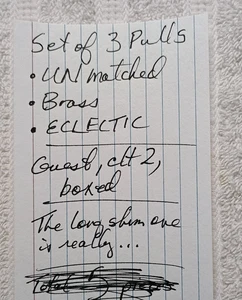 Set of 3 Pulls
• UNmatched
• Brass
• ECLECTIC
Guest, clt 2,
boxed
The long slim one
is really...
Total 5